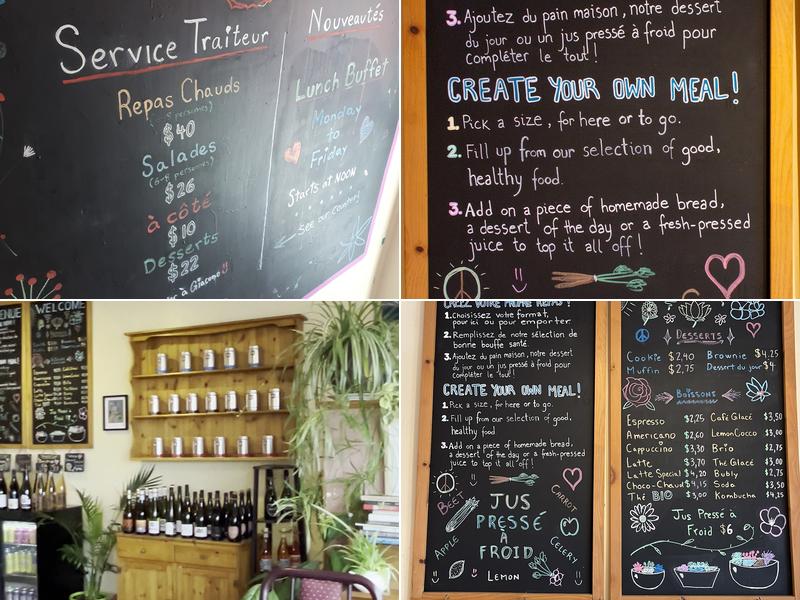 Service Traiteur
Repas Chauds
$40
Salades
$26
à côté
$10
Desserts
$22
Nouveautés
Lunch Buffet
Monday
to
Friday
Starts at NOON
See our counter!
3. Ajoutez du pain maison, notre dessert
du jour ou un jus pressé à froid pour
compléter le tout!
CREATE YOUR OWN MEAL!
1. Pick a size, for here or to go.
2. Fill up from our selection of good,
healthy food.
3. Add on a piece of homemade bread,
a dessert of the day or a fresh-pressed
juice to top it all off!
WELCOME
1. Choisissez votre format,
pour ici ou pour emporter.
2. Remplissez de notre sélection de
bonne bouffe santé.
3. Ajoutez du pain maison, notre dessert
du jour ou un jus pressé à froid pour
compléter le tout!
CREATE YOUR OWN MEAL!
1. Pick a size, for here or to go.
2. Fill up from our selection of good,
healthy food
3. Add on a piece of homemade bread,
a dessert of the day or a fresh-pressed
juice to top it all off!
BEET
CARROT
JUS
PRESSÉ
À
FROID
APPLE
CELERY
LEMON
Desserts
Cookie $2,40 Brownie $4.25
Muffin $2,75 Dessert du jour $4
Boissons
Espresso $2,25 Café Glacé $3,50
Americano $2,60 LemonCocco $3,00
Cappuccino $3,30 Brio $2,75
Latte $3,70 Thé Glacé $3,00
Latte Special $4,20 Bubly $2,75
Choco-Chaud $4,15 Soda $3,50
Thé BIO $3,00 Kombucha $4,25
Jus Pressé à
Froid $6